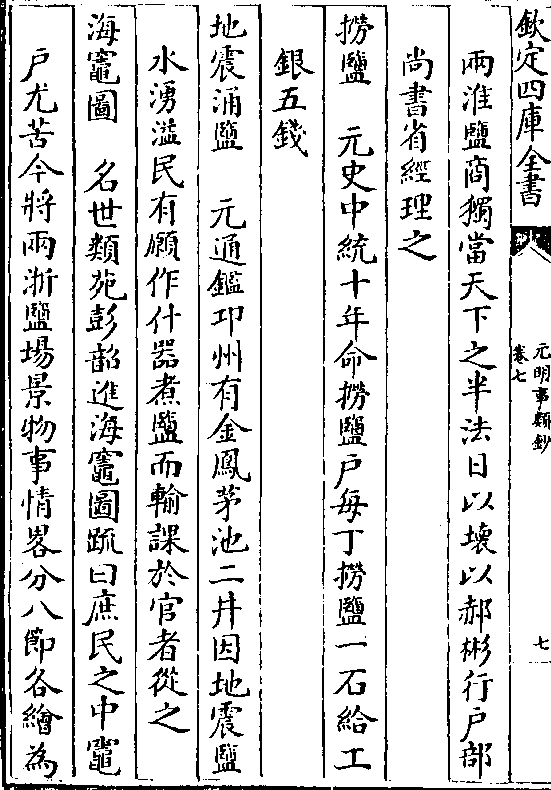 欽定四庫全書
元明事類鈔
卷七
七
兩淮鹽商獨當天下之半法日以壞以郝彬行戶部
尚書省經理之
撈鹽　元史中統十年命撈鹽戶每丁撈鹽一石給工
銀五錢
地震涌鹽　元通鑑邛州有金鳳茅池二井因地震鹽
水湧溢民有願作什器煮鹽而輸課於官者從之
海竈圖　名世類苑彭韶進海竈圖疏曰庶民之中竈
戶尤苦今將兩浙鹽場景物事情畧分八節各繪為